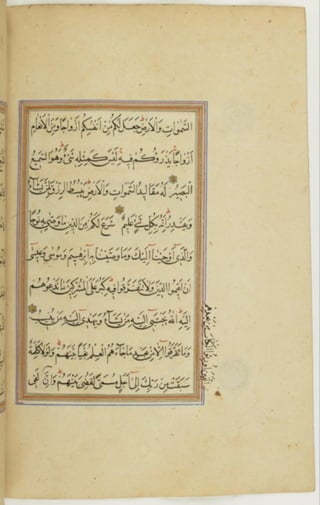 السَّمٰوَاتِ وَالْاَرْضِ جَعَلَ لَكُمْ مِنْ اَنْفُسِكُمْ اَزْوَاجًا وَمِنَ الْاَنْعَامِ
اَزْوَاجًا يَذْرَؤُكُمْ فِيهِ لَيْسَ كَمِثْلِهِ شَىْءٌ وَهُوَ السَّمِيعُ
الْبَصِيرُ لَهُ مَقَالِيدُ السَّمٰوَاتِ وَالْاَرْضِ يَبْسُطُ الرِّزْقَ لِمَنْ يَشَاءُ
وَيَقْدِرُ اِنَّهُ بِكُلِّ شَىْءٍ عَلِيمٌ شَرَعَ لَكُمْ مِنَ الدِّينِ مَا وَصّٰى بِهِ نُوحًا
وَالَّذِى اَوْحَيْنَا اِلَيْكَ وَمَا وَصَّيْنَا بِهِ اِبْرٰهِيمَ وَمُوسٰى وَعِيسٰى
اَنْ اَقِيمُوا الدِّينَ وَلَا تَتَفَرَّقُوا فِيهِ كَبُرَ عَلَى الْمُشْرِكِينَ مَا تَدْعُوهُمْ
اِلَيْهِ اَللّٰهُ يَجْتَبِى اِلَيْهِ مَنْ يَشَاءُ وَيَهْدِى اِلَيْهِ مَنْ يُنِيبُ
وَمَا تَفَرَّقُوا اِلَّا مِنْ بَعْدِ مَا جَاءَهُمُ الْعِلْمُ بَغْيًا بَيْنَهُمْ وَلَوْلَا كَلِمَةٌ
سَبَقَتْ مِنْ رَبِّكَ اِلٰى اَجَلٍ مُسَمًّى لَقُضِىَ بَيْنَهُمْ وَاِنَّ